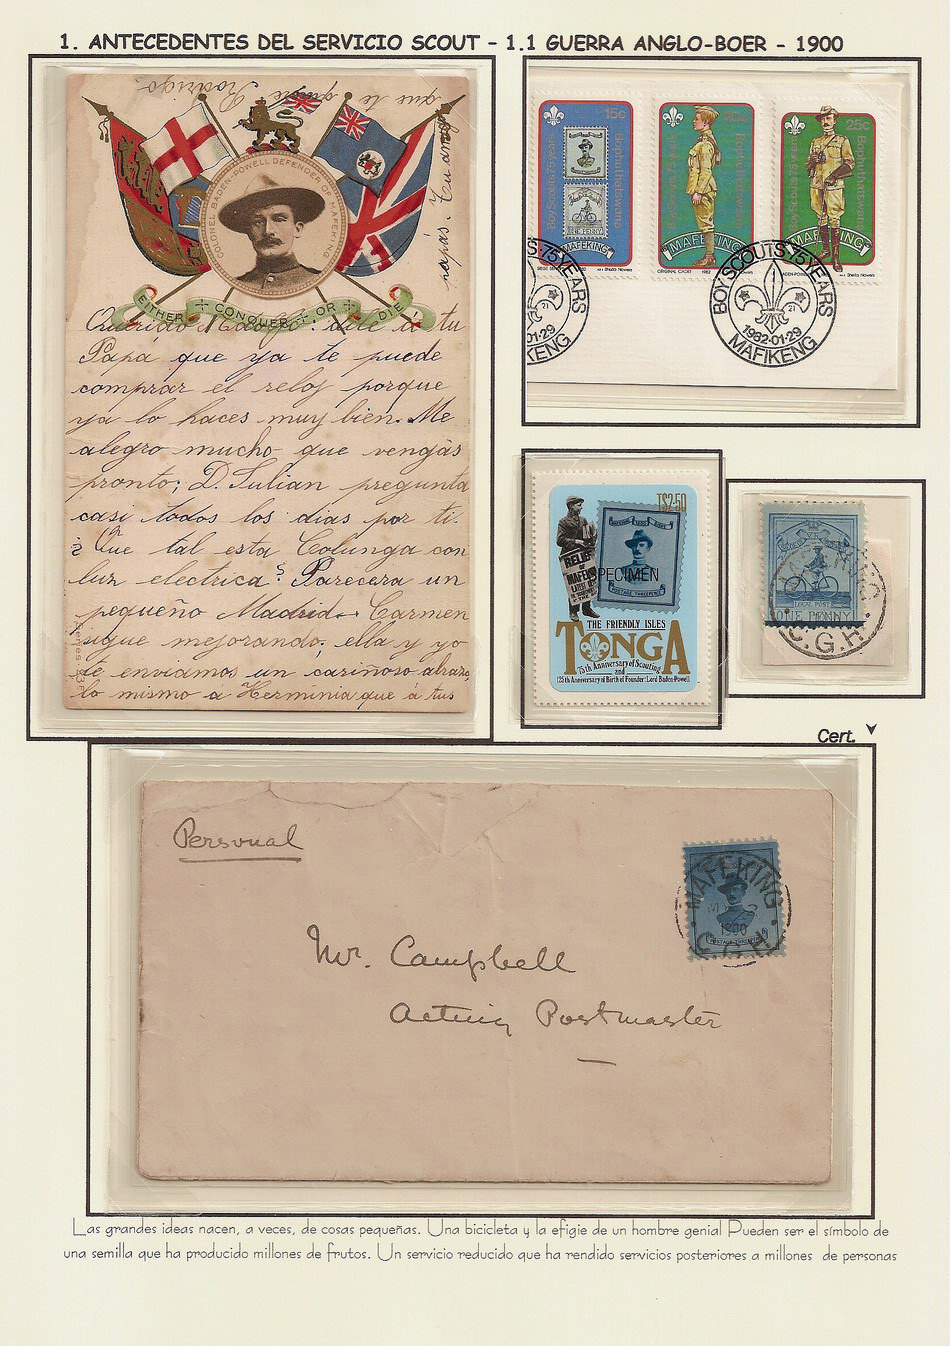 1. ANTECEDENTES DEL SERVICIO SCOUT - 1.1 GUERRA ANGLO-BOER - 1900
que te quiere Rodrigo
papás. Tu amigo
COLONEL BADEN-POWELL DEFENDER OF MAFEKING
EITHER + CONQUER + OR + DIE
Querido Rodrigo: dile á tu
Papá que ya te puede
comprar el reloj porque
ya lo haces muy bien. Me
alegro mucho que vengàs
pronto; D. Julian pregunta
casi todos los dias por ti.
¿Que tal esta Colunga con
luz electrica? Parecera un
pequeño Madrid. Carmen
sigue mejorando. ella y yo
te enviamos un cariñoso abrazo
lo mismo a Herminia que á tus
15c
Boy Scouts 75 years
Bophuthatswana
ONE PENNY
MAFEKING
20c
Boy Scouts 75 years
Bophuthatswana
MAFEKING
ORIGINAL CADET 1982 Sheila Nowers
25c
Boy Scouts 75 years
Bophuthatswana
MAFEKING
Sheila Nowers
01·29
KENG
BOY SCOUTS 75 YEARS
21
1982·01·29
MAFIKENG
T$2·50
RELIEF
OF
MAFEKING
SPECIMEN
POSTAGE THREEPENCE
THE FRIENDLY ISLES
TONGA
75th Anniversary of Scouting
and
125th Anniversary of Birth of Founder: Lord Baden-Powell
LOCAL POST
ONE PENNY
MAFEKING
C.G.H.
Cert.
Personal
MAFEKING
1900
C.G.H.
POSTAGE THREEPENCE
Mr. Campbell
Acting Postmaster
Las grandes ideas nacen, a veces, de cosas pequeñas. Una bicicleta y la efigie de un hombre genial Pueden ser el símbolo de
una semilla que ha producido millones de frutos. Un servicio reducido que ha rendido servicios posteriores a millones de personas